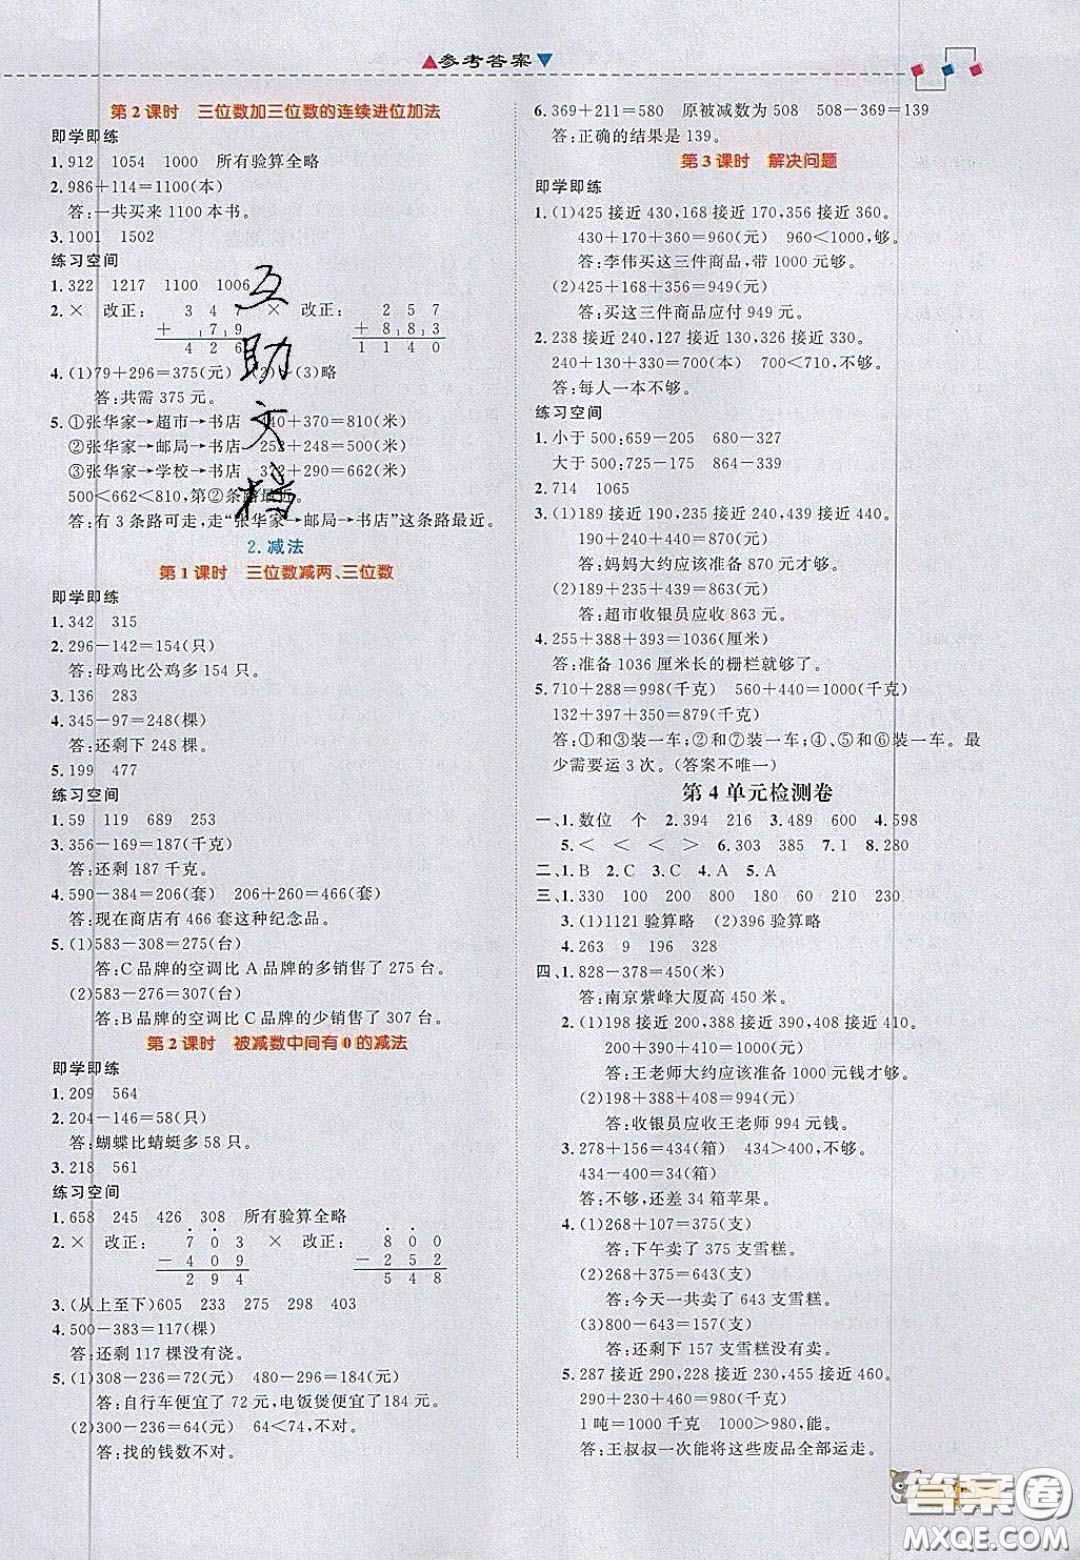 参考答案
第2课时 三位数加三位数的连续进位加法
即学即练
1.912 1054 1000 所有验算全略
2.986+114=1100(本)
答:一共买来1100本书。
3.1001 1502
练习空间
1.322 1217 1100 1006
2.× 改正: 3 4 7 × 改正: 2 5 7
+ 7 9 + 8 8 3
4 2 6 1 1 4 0
4.(1)79+296=375(元) (2)(3)略
答:共需375元。
5.①张华家→超市→书店 440+370=810(米)
②张华家→邮局→书店 252+248=500(米)
③张华家→学校→书店 372+290=662(米)
500<662<810,第②条路最近。
答:有3条路可走,走“张华家→邮局→书店”这条路最近。
2.减法
第1课时 三位数减两、三位数
即学即练
1.342 315
2.296-142=154(只)
答:母鸡比公鸡多154只。
3.136 283
4.345-97=248(棵)
答:还剩下248棵。
5.199 477
练习空间
1.59 119 689 253
3.356-169=187(千克)
答:还剩187千克。
4.590-384=206(套) 206+260=466(套)
答:现在商店有466套这种纪念品。
5.(1)583-308=275(台)
答:C品牌的空调比A品牌的多销售了275台。
(2)583-276=307(台)
答:B品牌的空调比C品牌的少销售了307台。
第2课时 被减数中间有0的减法
即学即练
1.209 564
2.204-146=58(只)
答:蝴蝶比蜻蜓多58只。
3.218 561
练习空间
1.658 245 426 308 所有验算全略
2.× 改正: 7 0 3 × 改正: 8 0 0
- 4 0 9 - 2 5 2
2 9 4 5 4 8
3.(从上至下)605 233 275 298 403
4.500-383=117(棵)
答:还剩117棵没有浇。
5.(1)308-236=72(元) 480-296=184(元)
答:自行车便宜了72元,电饭煲便宜了184元。
(2)300-236=64(元) 64<74,不对。
答:找的钱数不对。
6.369+211=580 原被减数为508 508-369=139
答:正确的结果是139。
第3课时 解决问题
即学即练
1.(1)425接近430,168接近170,356接近360。
430+170+360=960(元) 960<1000,够。
答:李伟买这三件商品,带1000元够。
(2)425+168+356=949(元)
答:买这三件商品应付949元。
2.238接近240,127接近130,326接近330。
240+130+330=700(本) 700<710,不够。
答:每人一本不够。
练习空间
1.小于500:659-205 680-327
大于500:725-168 864-339
2.714 1065
3.(1)189接近190,235接近240,439接近440。
190+240+440=870(元)
答:妈妈大约应该准备870元。
(2)189+235+439=863(元)
答:超市收银员应收863元。
4.255+388+393=1036(厘米)
答:准备1036厘米长的栅栏就够了。
5.710+288=998(千克) 560+440=1000(千克)
132+397+350=879(千克)
答:①和③装一车;②和⑦装一车;④、⑤和⑥装一车。最
少需要运3次。(答案不唯一)
第4单元检测卷
一、1.数位 个 2.394 216 3.489 600 4.598
5.< < < > 6.303 385 7.1 8.280
二、1.B 2.C 3.C 4.A 5.A
三、1.330 100 200 800 180 60 830 230
3.(1)1121验算略 (2)396验算略
4.263 9 196 328
四、1.828-378=450(米)
答:南京紫峰大厦高450米。
2.(1)198接近200,388接近390,408接近410。
200+390+410=1000(元)
答:王老师大约应该准备1000元钱才够。
(2)198+388+408=994(元)
答:收银员应收王老师994元钱。
3.278+156=434(箱) 434>400,不够。
434-400=34(箱)
答:不够,还差34箱苹果。
4.(1)268+107=375(支)
答:下午卖了375支雪糕。
(2)268+375=643(支)
答:今天一共卖了643支雪糕。
(3)800-643=157(支)
答:还剩下157支雪糕没有卖出。
5.287接近290,228接近230,455接近460。
290+230+460=980(千克)
1吨=1000千克 1000>980,能。
答:王叔叔一次能将这些废品全部运走。
互助文档
答案圈
MXQE.COM